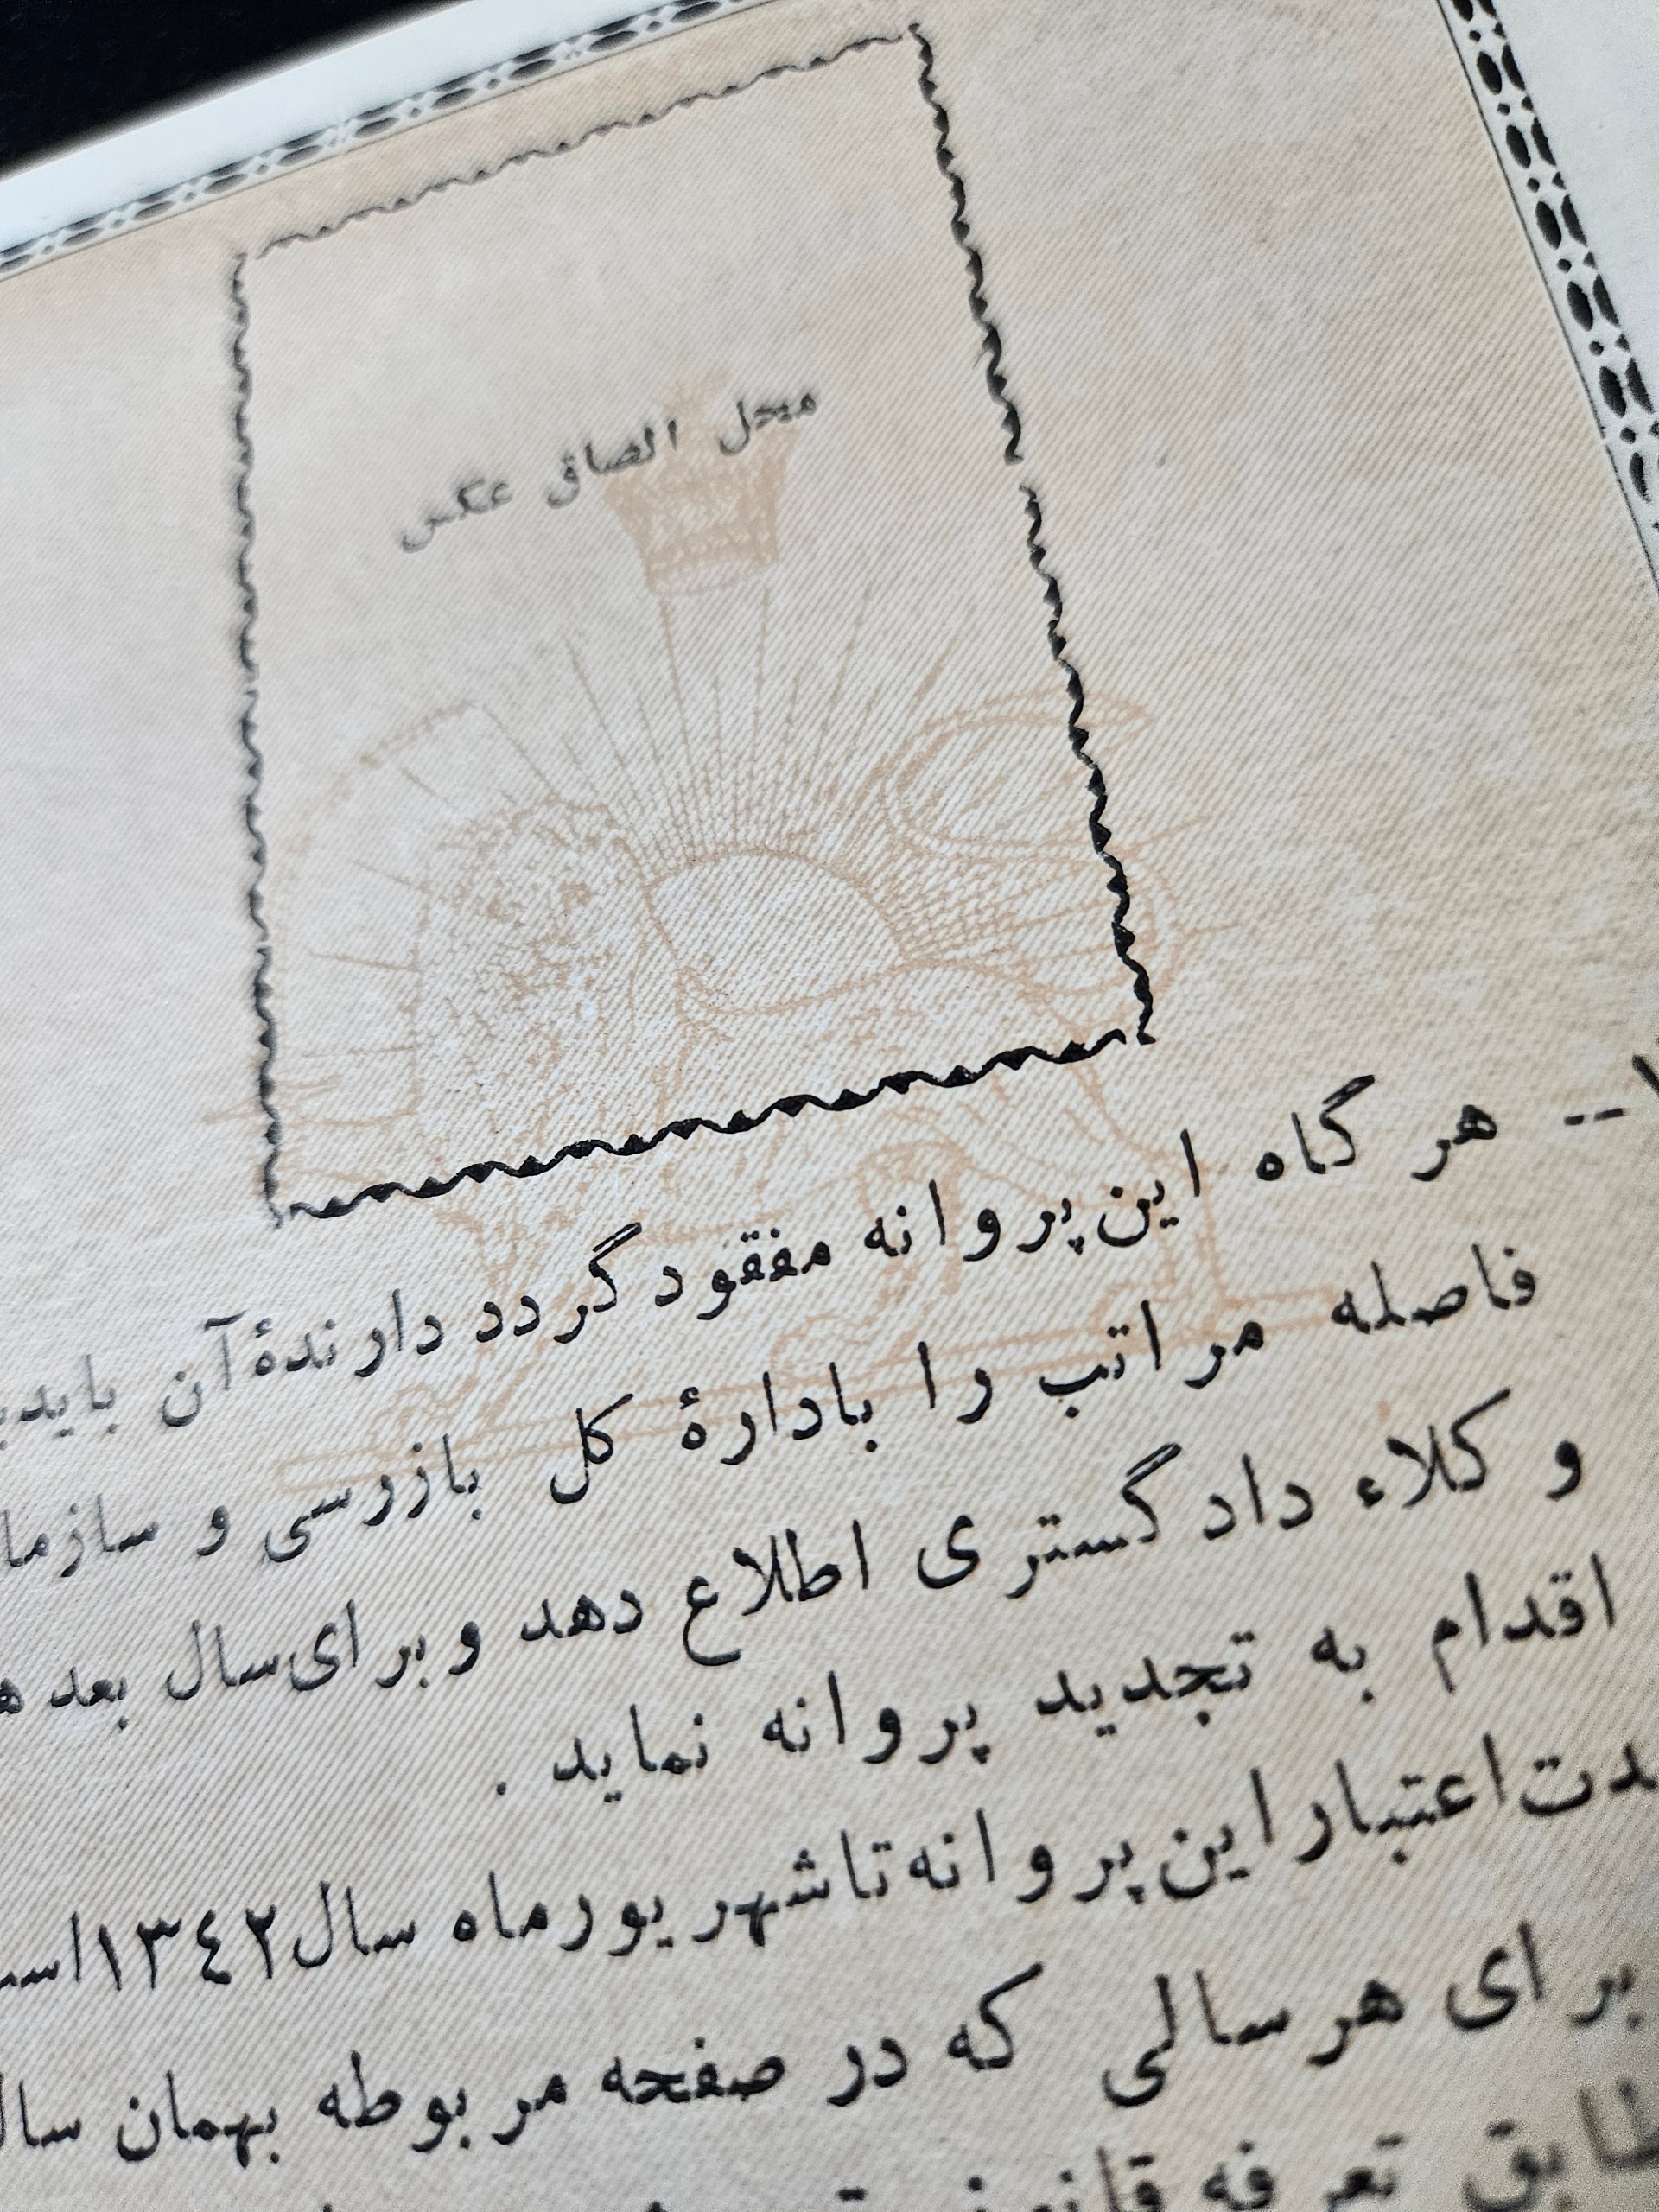 محل الصاق عکس
۱-- هر گاه این پروانه مفقود گردد دارندهٔ آن باید
فاصله مراتب را بادارهٔ کل بازرسی و سازما
و کلاء دادگستری اطلاع دهد و برای سال بعد
اقدام به تجدید پروانه نماید .
دت اعتبار این پروانه تا شهریور ماه سال ۱۳٤۲ است
برای هر سالی که در صفحه مربوطه بهمان سال
طابق تعرفه